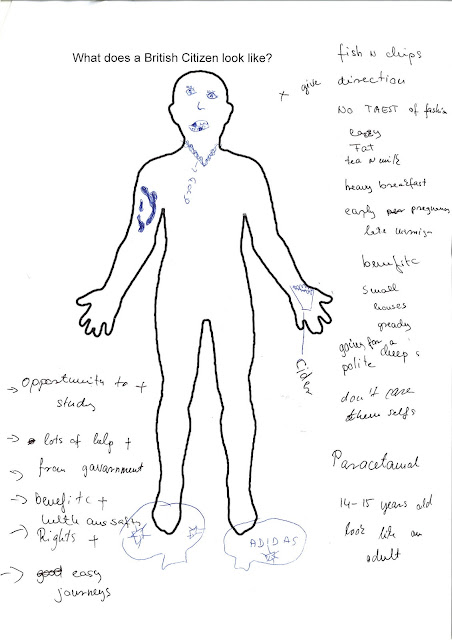 What does a British Citizen look like?
fish N chips
+ give direction
NO TAEST of fashion
Fat
tea N milk
heavy breakfast
early pregnancy
late
benefitc
small
houses
greedy
going for a
polite
don't care
them selfs
Paracetamal
14-15 years old
look like an
adult
GOOD
Cider
ADIDAS
→ opportunity to +
study
→ lots of help +
from gavarnment
→ benefitc +
→ Rights +
→ good easy
journeys